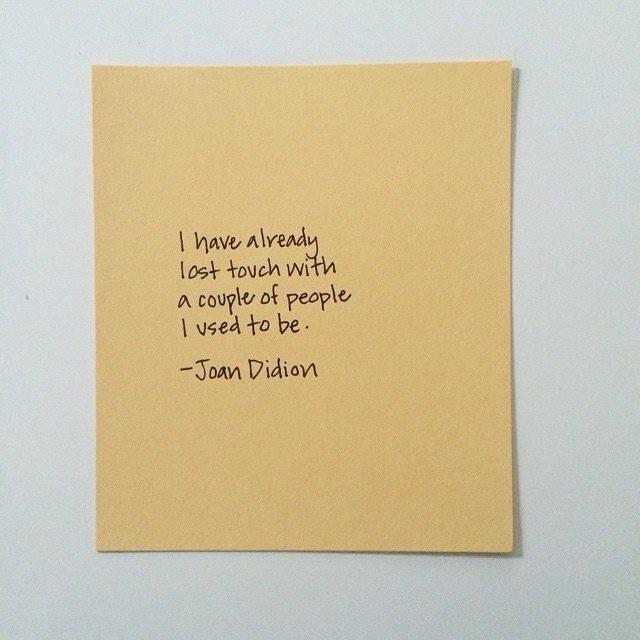 I have already
lost touch with
a couple of people
I used to be.
-Joan Didion